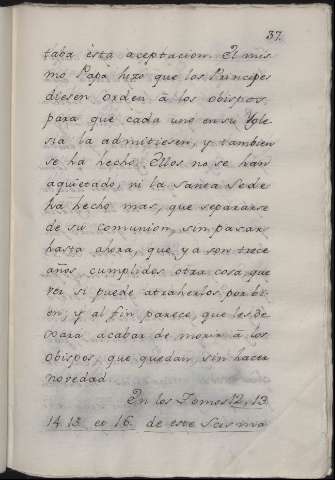 37.
taba ésta aceptacion. El mis
mo Papa hizo que los Principes
diesen orden á los obispos
para que cada uno en su Ygle
sia la admitiesen, y tambien
se ha hecho. Ellos no se han
aquietado, ni la Santa Sede
ha hecho mas, que separarse
de su comunion, sin pasar
hasta ahora, que ya son trece
años cumplidos otra cosa, que
ver si puede atraherlos por bi
en; y al fin parece, que les de
xara acabar de morir á los
obispos, que quedan sin hacer
novedad.
En los Tomos 12, 13
14. 15. et 16. de este